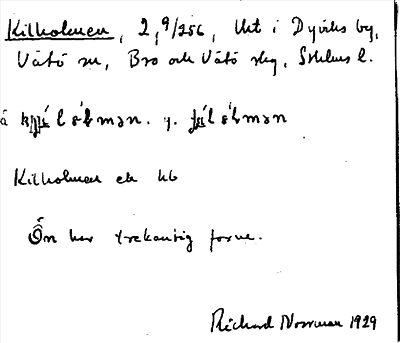 Kilholmen, 2, 9/256, Ut i Dyviks by,
Vätö sn, Bro och Vätö skg, Sthlms l.
Kilholmen ek kb
Ön har trekantig form.
Richard Norrman 1929